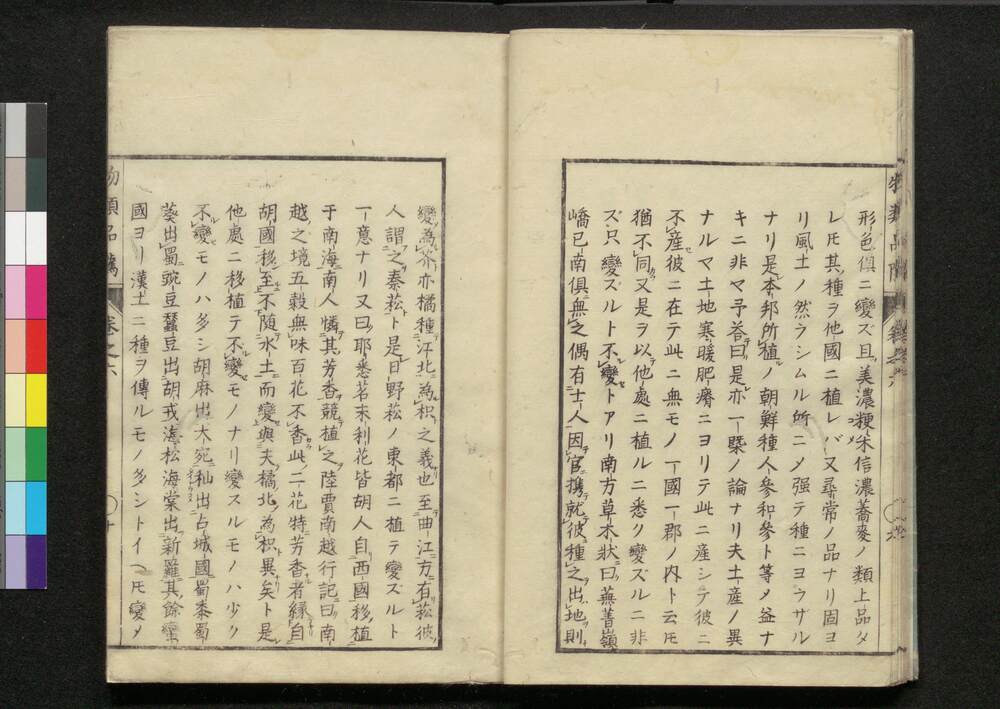 形色俱ニ變ズ且美濃粳米信濃蕎麥ノ類上品タ
レ𪜈其種ヲ他國ニ植レバ又尋常ノ品ナリ固ヨ
リ風土ノ然ラシムル所ニメ强テ種ニヨラザル
ナリ是本邦所植ノ朝鮮種人參和參ト等メ益ナ
キニ非マ予荅曰是亦一槩ノ論ナリ夫土産ノ異
ナルマ土地寒暖肥瘠ニヨリテ此ニ産シテ彼ニ
不産彼ニ在テ此ニ無モノ一國一郡ノ内ト云𪜈
猶不同又是ヲ以他處ニ植ルニ悉ク變ズルニ非
ズ只變ズルト不變トアリ南方草木狀曰蕪菁嶺
嶠已南俱無之偶有士人因官携就彼種之出地則
變為芥亦橘種江北為枳之義也至曲江方有菘彼
人謂之秦菘ト是日野菘ノ東都ニ植テ變ズルト
一意ナリ又曰耶悉茗末利花皆胡人自西國移植
于南海南人憐其芳香競植之陸賈南越行記曰南
越之境五穀無味百花不香此二花特芳香者緣自
胡國移至不随水土而變與夫橘北為枳異矣ト是
他處ニ移植テ不變モノナリ變スルモノハ少ク
不變モノハ多シ胡麻出大宛秈出占城國蜀黍蜀
葵出蜀豌豆蠶豆出胡戎海松海棠出新羅其餘蠻
國ヨリ漢土ニ種ヲ傳ルモノ多シトイヘ𪜈變メ
物類品隲
卷之六
十